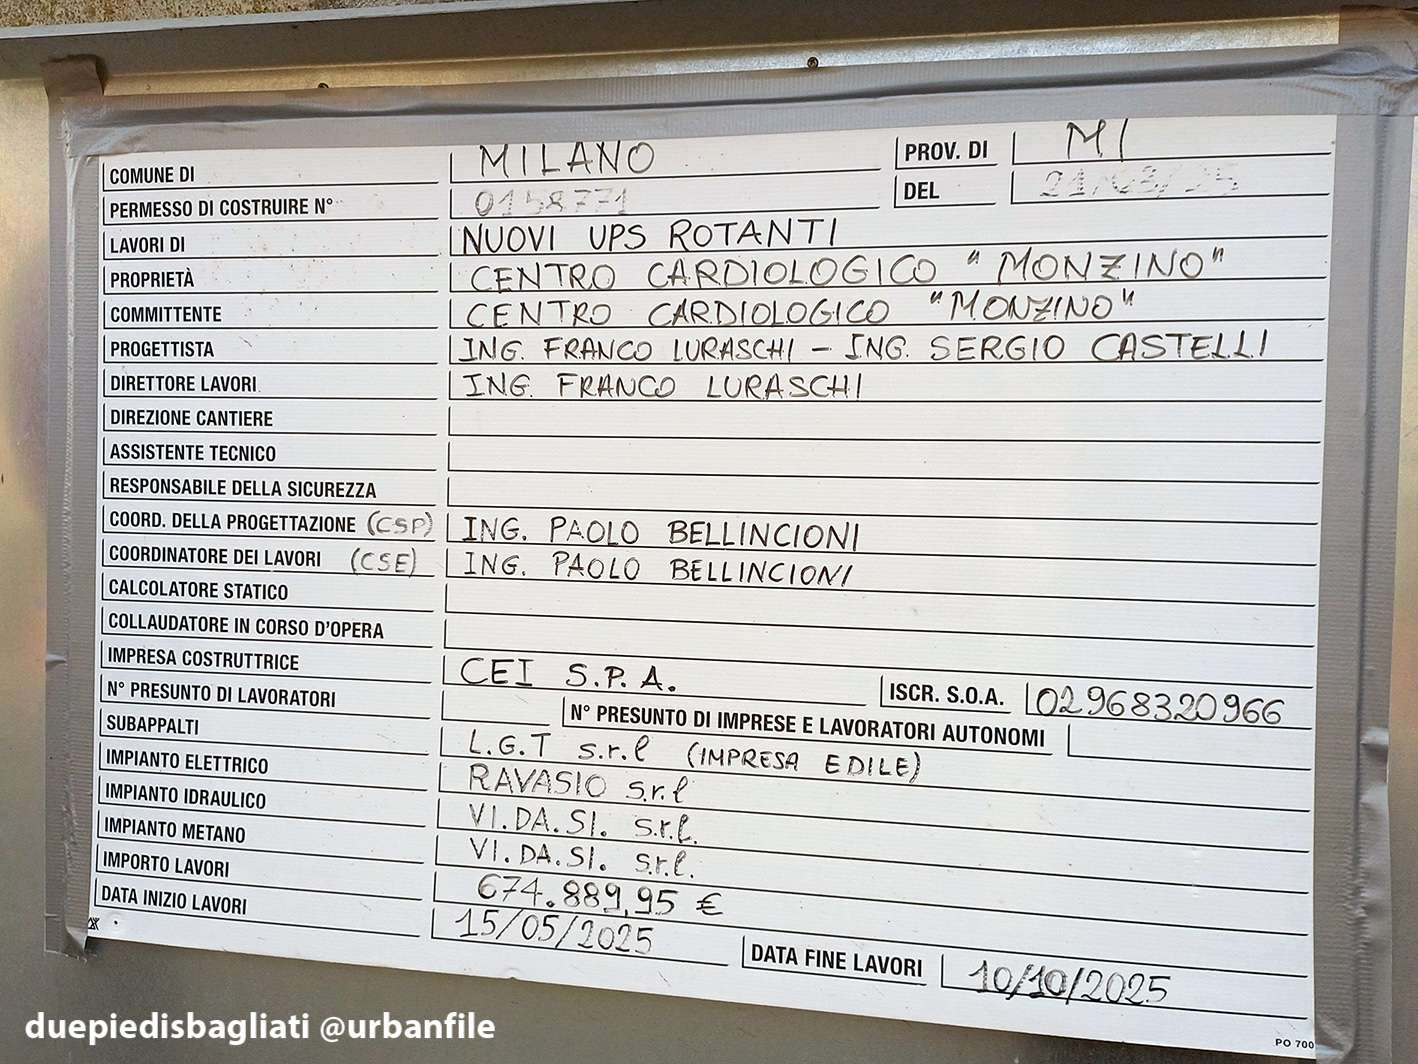 COMUNE DI MILANO PROV. DI MI
PERMESSO DI COSTRUIRE N° 0158771 DEL
LAVORI DI NUOVI UPS ROTANTI
PROPRIETÀ CENTRO CARDIOLOGICO "MONZINO"
COMMITTENTE CENTRO CARDIOLOGICO "MONZINO"
PROGETTISTA ING. FRANCO LURASCHI - ING. SERGIO CASTELLI
DIRETTORE LAVORI ING. FRANCO LURASCHI
DIREZIONE CANTIERE
ASSISTENTE TECNICO
RESPONSABILE DELLA SICUREZZA
COORD. DELLA PROGETTAZIONE (CSP) ING. PAOLO BELLINCIONI
COORDINATORE DEI LAVORI (CSE) ING. PAOLO BELLINCIONI
CALCOLATORE STATICO
COLLAUDATORE IN CORSO D'OPERA
IMPRESA COSTRUTTRICE CEI S.P.A. ISCR. S.O.A. 02968320966
N° PRESUNTO DI LAVORATORI N° PRESUNTO DI IMPRESE E LAVORATORI AUTONOMI
SUBAPPALTI L.G.T s.r.l (IMPRESA EDILE)
IMPIANTO ELETTRICO RAVASIO s.r.l
IMPIANTO IDRAULICO VI.DA.SI. s.r.l.
IMPIANTO METANO VI.DA.SI. s.r.l.
IMPORTO LAVORI 674.889,95 €
DATA INIZIO LAVORI 15/05/2025 DATA FINE LAVORI 10/10/2025
PO 700
duepiedisbagliati @urbanfile